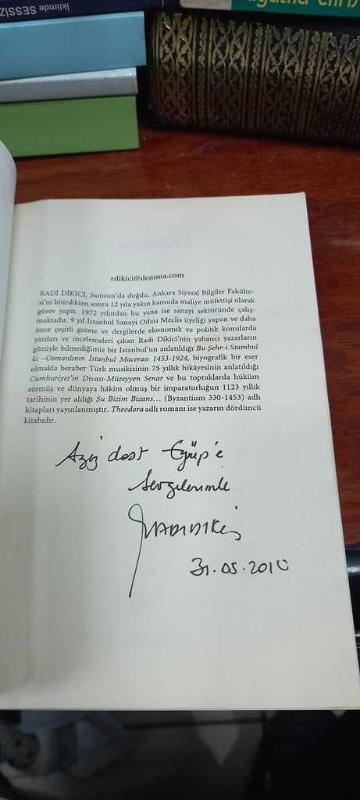 iklimde SESSİZ
Agatha Chris
rdikici@demma.com
RADİ DİKİCİ, Samsun'da doğdu. Ankara Siyasal Bilgiler Fakülte-
si'ni bitirdikten sonra 12 yıla yakın kamuda maliye müfettişi olarak
görev yaptı. 1972 yılından bu yana ise sanayi sektöründe çalış-
maktadır. 9 yıl İstanbul Sanayi Odası Meclis üyeliği yapan ve daha
önce çeşitli gazete ve dergilerde ekonomik ve politik konularda
yazıları ve incelemeleri çıkan Radi Dikici'nin yabancı yazarların
gözüyle bilmediğimiz bir İstanbul'un anlatıldığı Bu Şehr-i Stambul
ki –Osmanlının İstanbul Macerası 1453-1924, biyografik bir eser
olmakla beraber Türk musikisinin 75 yıllık hikâyesinin anlatıldığı
Cumhuriyet'in Divası-Müzeyyen Senar ve bu topraklarda hüküm
sürmüş ve dünyaya hâkim olmuş bir imparatorluğun 1123 yıllık
tarihinin yer aldığı Şu Bizim Bizans... (Byzantium 330-1453) adlı
kitapları yayınlanmıştır. Theodora adlı romanı ise yazarın dördüncü
kitabıdır.
Aziz dost Eyüp'e
Sevgilerimle
31.05.2010